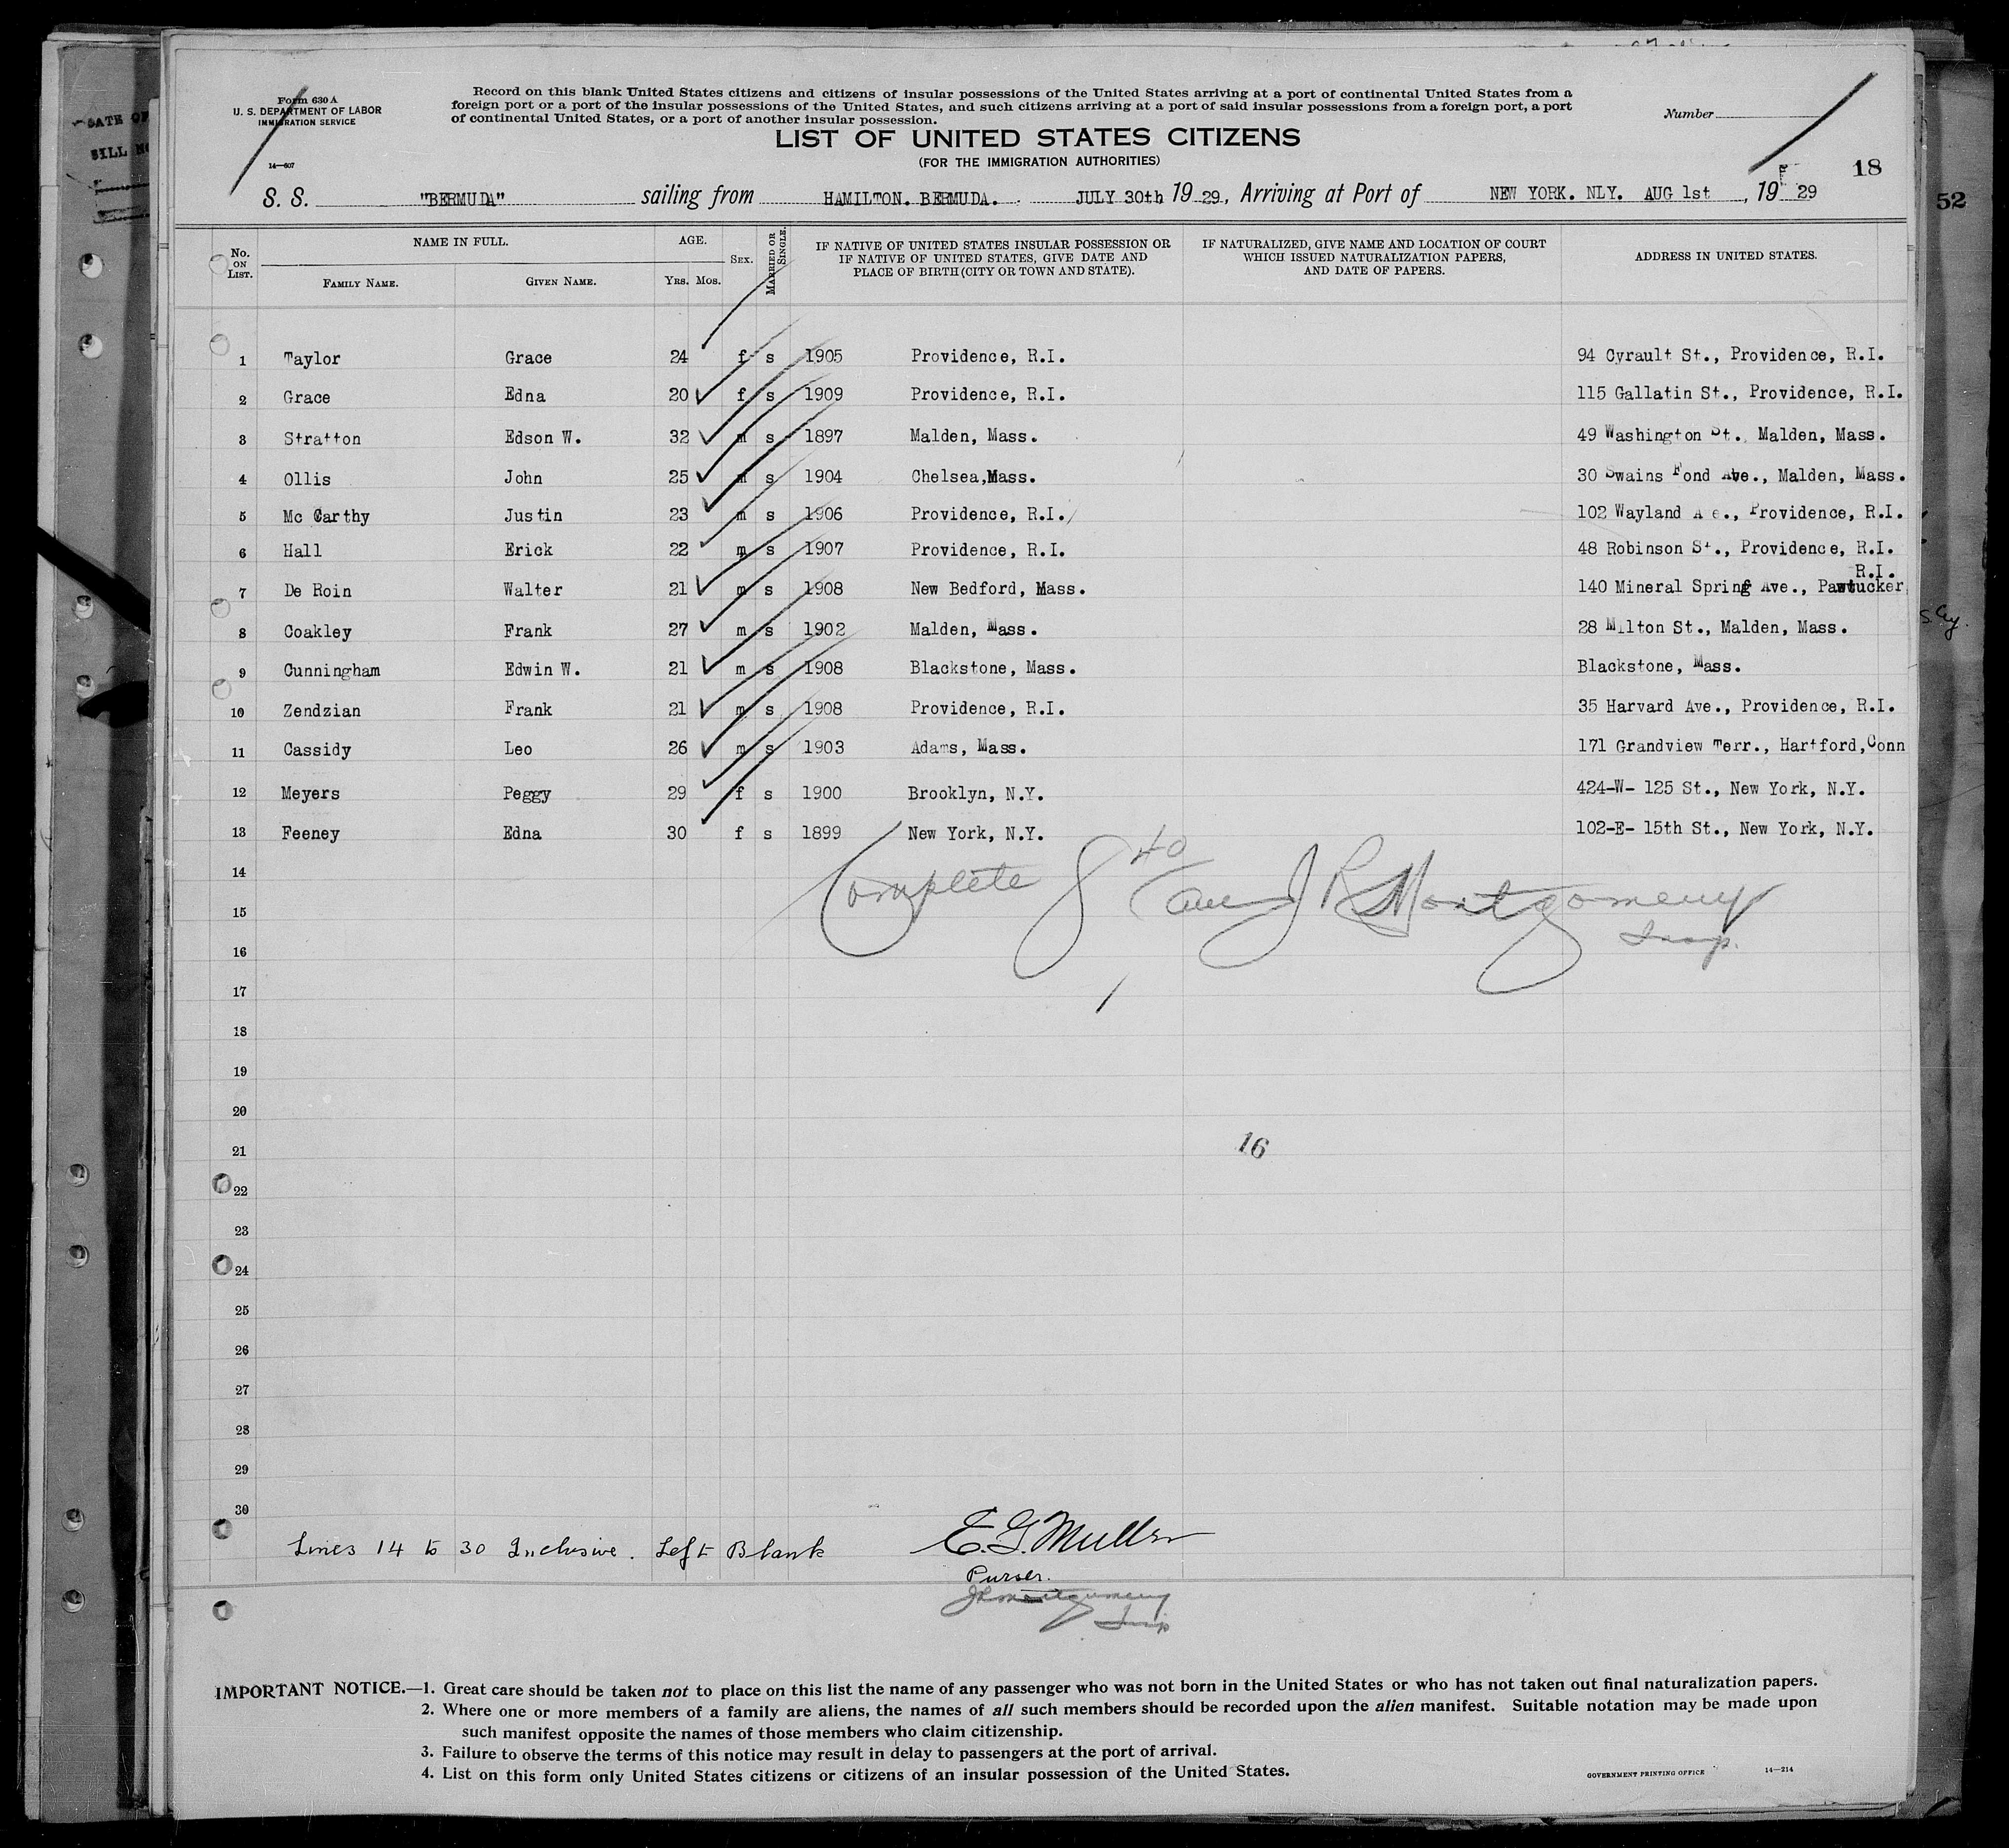 Form 630 A
U. S. DEPARTMENT OF LABOR
IMMIGRATION SERVICE
14—607
Record on this blank United States citizens and citizens of insular possessions of the United States arriving at a port of continental United States from a
foreign port or a port of the insular possessions of the United States, and such citizens arriving at a port of said insular possessions from a foreign port, a port
of continental United States, or a port of another insular possession.
Number
LIST OF UNITED STATES CITIZENS
(FOR THE IMMIGRATION AUTHORITIES)
18
52
S. S. "BERMUDA" sailing from HAMILTON. BERMUDA. JULY 30th 19 29, Arriving at Port of NEW YORK. NLY. AUG 1st, 19 29
No. ON LIST.
NAME IN FULL.
FAMILY NAME. GIVEN NAME.
AGE.
YRS. MOS.
SEX.
MARRIED OR SINGLE.
IF NATIVE OF UNITED STATES INSULAR POSSESSION OR
IF NATIVE OF UNITED STATES, GIVE DATE AND
PLACE OF BIRTH (CITY OR TOWN AND STATE).
IF NATURALIZED, GIVE NAME AND LOCATION OF COURT
WHICH ISSUED NATURALIZATION PAPERS,
AND DATE OF PAPERS.
ADDRESS IN UNITED STATES.
1 Taylor Grace 24 f s 1905 Providence, R.I. 94 Cyrault St., Providence, R.I.
2 Grace Edna 20 f s 1909 Providence, R.I. 115 Gallatin St., Providence, R.I.
3 Stratton Edson W. 32 m s 1897 Malden, Mass. 49 Washington St., Malden, Mass.
4 Ollis John 25 m s 1904 Chelsea,Mass. 30 Swains Pond Ave., Malden, Mass.
5 Mc Carthy Justin 23 m s 1906 Providence, R.I. 102 Wayland A e., Providence, R.I.
6 Hall Erick 22 m s 1907 Providence, R.I. 48 Robinson St., Providence, R.I.
7 De Roin Walter 21 m s 1908 New Bedford, Mass. 140 Mineral Spring Ave., Pawtucker R.I.
8 Coakley Frank 27 m s 1902 Malden, Mass. 28 Milton St., Malden, Mass.
9 Cunningham Edwin W. 21 m s 1908 Blackstone, Mass. Blackstone, Mass.
10 Zendzian Frank 21 m s 1908 Providence, R.I. 35 Harvard Ave., Providence, R.I.
11 Cassidy Leo 26 m s 1903 Adams, Mass. 171 Grandview Terr., Hartford,Conn
12 Meyers Peggy 29 f s 1900 Brooklyn, N.Y. 424-W- 125 St., New York, N.Y.
13 Feeney Edna 30 f s 1899 New York, N.Y. 102-E- 15th St., New York, N.Y.
14
Complete 8 40 am J R Montgomery
15
Insp.
16
17
18
19
20
21
16
22
23
24
25
26
27
28
29
30
Lines 14 to 30 Inclusive. Left Blank E. G. Muller
Purser.
JR Montgomery
Insp
IMPORTANT NOTICE.—1. Great care should be taken not to place on this list the name of any passenger who was not born in the United States or who has not taken out final naturalization papers.
2. Where one or more members of a family are aliens, the names of all such members should be recorded upon the alien manifest. Suitable notation may be made upon
such manifest opposite the names of those members who claim citizenship.
3. Failure to observe the terms of this notice may result in delay to passengers at the port of arrival.
4. List on this form only United States citizens or citizens of an insular possession of the United States.
GOVERNMENT PRINTING OFFICE 14—214